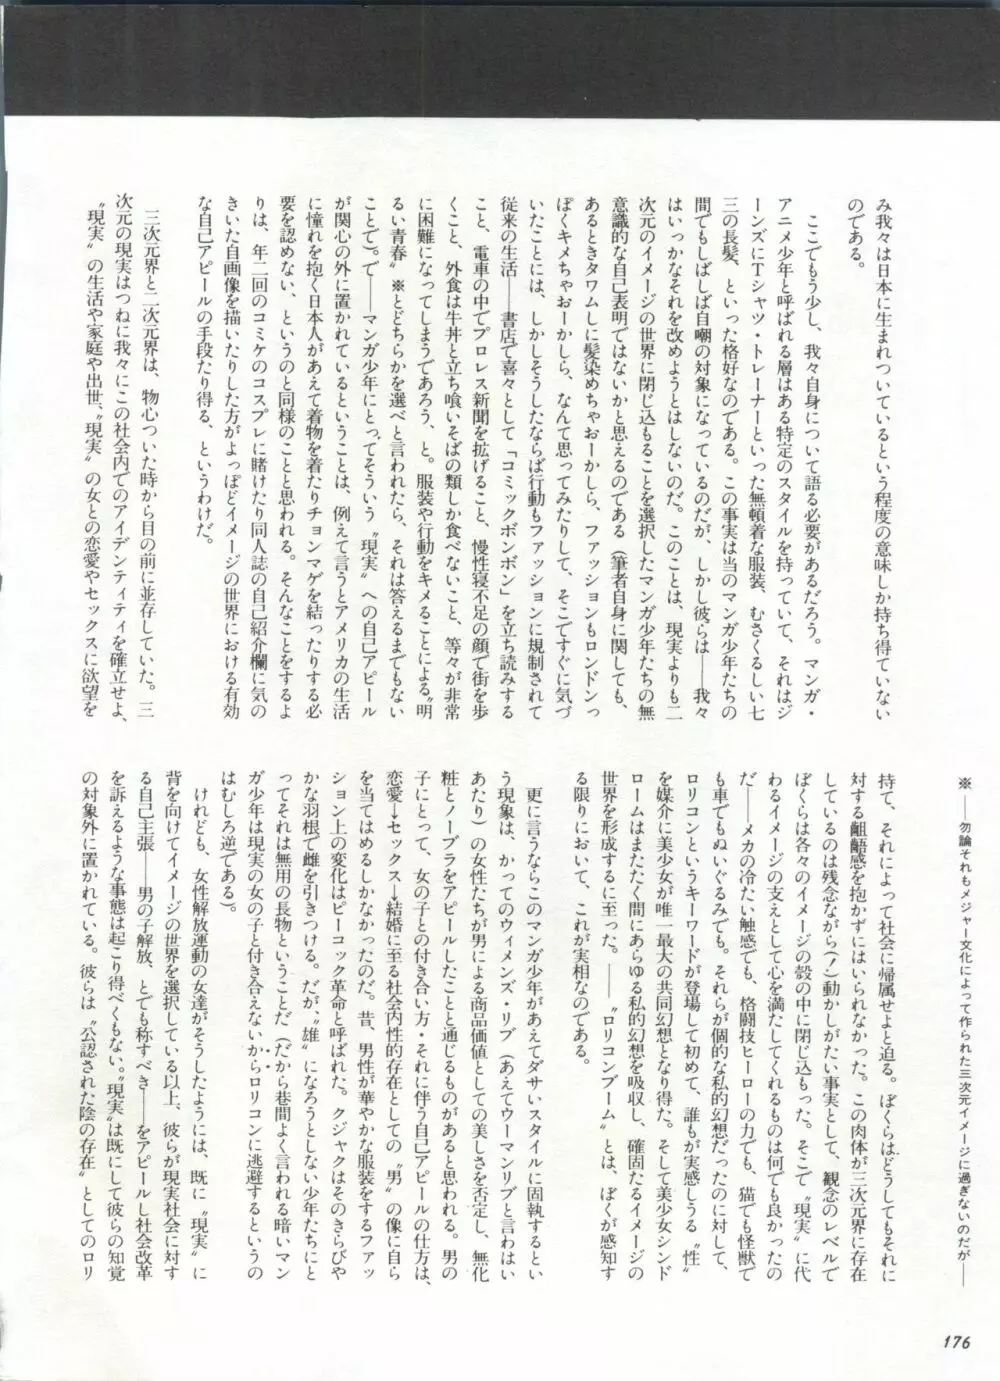 み我々は日本に生まれついているという程度の意味しか持ち得ていない
のである。
ここでもう少し、我々自身について語る必要があるだろう。マンガ・
アニメ少年と呼ばれる層はある特定のスタイルを持っていて、それはジ
ーンズにTシャツ・トレーナーといった無頓着な服装、むさくるしい七
三の長髪、といった格好なのである。この事実は当のマンガ少年たちの
間でもしばしば自嘲の対象になっているのだが、しかし彼らは――我々
はいっかなそれを改めようとはしないのだ。このことは、現実よりも二
次元のイメージの世界に閉じ込もることを選択したマンガ少年たちの無
意識的な自己表明ではないかと思えるのである（筆者自身に関しても、
あるときタワムしに髪染めちゃおーかしら、ファッションもロンドンっ
ぽくキメちゃおーかしら、なんて思ってみたりして、そこですぐに気づ
いたことには、しかしそうしたならば行動もファッションに規制されて
従来の生活――書店で喜々として「コミックボンボン」を立ち読みする
こと、電車の中でプロレス新聞を拡げること、慢性寝不足の顔で街を歩
くこと、外食は牛丼と立ち喰いそばの類しか食べないこと、等々が非常
に困難になってしまうであろう、と。服装や行動をキメることによる〝明
るい青春〟※とどちらかを選べと言われたら、それは答えるまでもない
ことで）。で――マンガ少年にとってそういう〝現実〟への自己アピール
が関心の外に置かれているということは、例えて言うとアメリカの生活
に憧れを抱く日本人があえて着物を着たりチョンマゲを結ったりする必
要を認めない、というのと同様のことと思われる。そんなことをするよ
りは、年二回のコミケのコスプレに賭けたり同人誌の自己紹介欄に気の
きいた自画像を描いたりした方がよっぽどイメージの世界における有効
な自己アピールの手段たり得る、というわけだ。
三次元界と二次元界は、物心ついた時から目の前に並存していた。三
次元の現実はつねに我々にこの社会内でのアイデンティティを確立せよ、
〝現実〟の生活や家庭や出世、〝現実〟の女との恋愛やセックスに欲望を
※――勿論それもメジャー文化によって作られた三次元イメージに過ぎないのだが――
持て、それによって社会に帰属せよと迫る。ぼくらはどうしてもそれに
対する齟齬感を抱かずにはいられなかった。この肉体が三次元界に存在
しているのは残念ながら（！）動かしがたい事実として、観念のレベルで
ぼくらは各々のイメージの殻の中に閉じ込もった。そこで〝現実〟に代
わるイメージの支えとして心を満たしてくれるものは何でも良かったの
だ――メカの冷たい触感でも、格闘技ヒーローの力でも、猫でも怪獣で
も車でもぬいぐるみでも。それらが個的な私的幻想だったのに対して、
ロリコンというキーワードが登場して初めて、誰もが実感しうる〝性〟
を媒介に美少女が唯一最大の共同幻想となり得た。そして美少女シンド
ロームはまたたく間にあらゆる私的幻想を吸収し、確固たるイメージの
世界を形成するに至った。――〝ロリコンブーム〟とは、ぼくが感知す
る限りにおいて、これが実相なのである。
更に言うならこのマンガ少年があえてダサいスタイルに固執するとい
う現象は、かってのウィメンズ・リブ（あえてウーマンリブと言わはい
あたり）の女性たちが男による商品価値としての美しさを否定し、無化
粧とノーブラをアピールしたことと通じるものがあると思われる。男の
子にとって、女の子との付き合い方・それに伴う自己アピールの仕方は、
恋愛→セックス→結婚に至る社会内性的存在としての〝男〟の像に自ら
を当てはめるしかなかったのだ。昔、男性が華やかな服装をするファッ
ション上の変化はピーコック革命と呼ばれた。クジャクはそのきらびや
かな羽根で雌を引きつける。だが、〝雄〟になろうとしない少年たちにと
ってそれは無用の長物ということだ（だから巷間よく言われる暗いマン
ガ少年は現実の女の子と付き合えないからロリコンに逃避するというの
はむしろ逆である）。
けれども、女性解放運動の女達がそうしたようには、既に〝現実〟に
背を向けてイメージの世界を選択している以上、彼らが現実社会に対す
る自己主張――男の子解放、とでも称すべき――をアピールし社会改革
を訴えるような事態は起こり得べくもない。〝現実〟は既にして彼らの知覚
の対象外に置かれている。彼らは〝公認された陰の存在〟としてのロリ
176